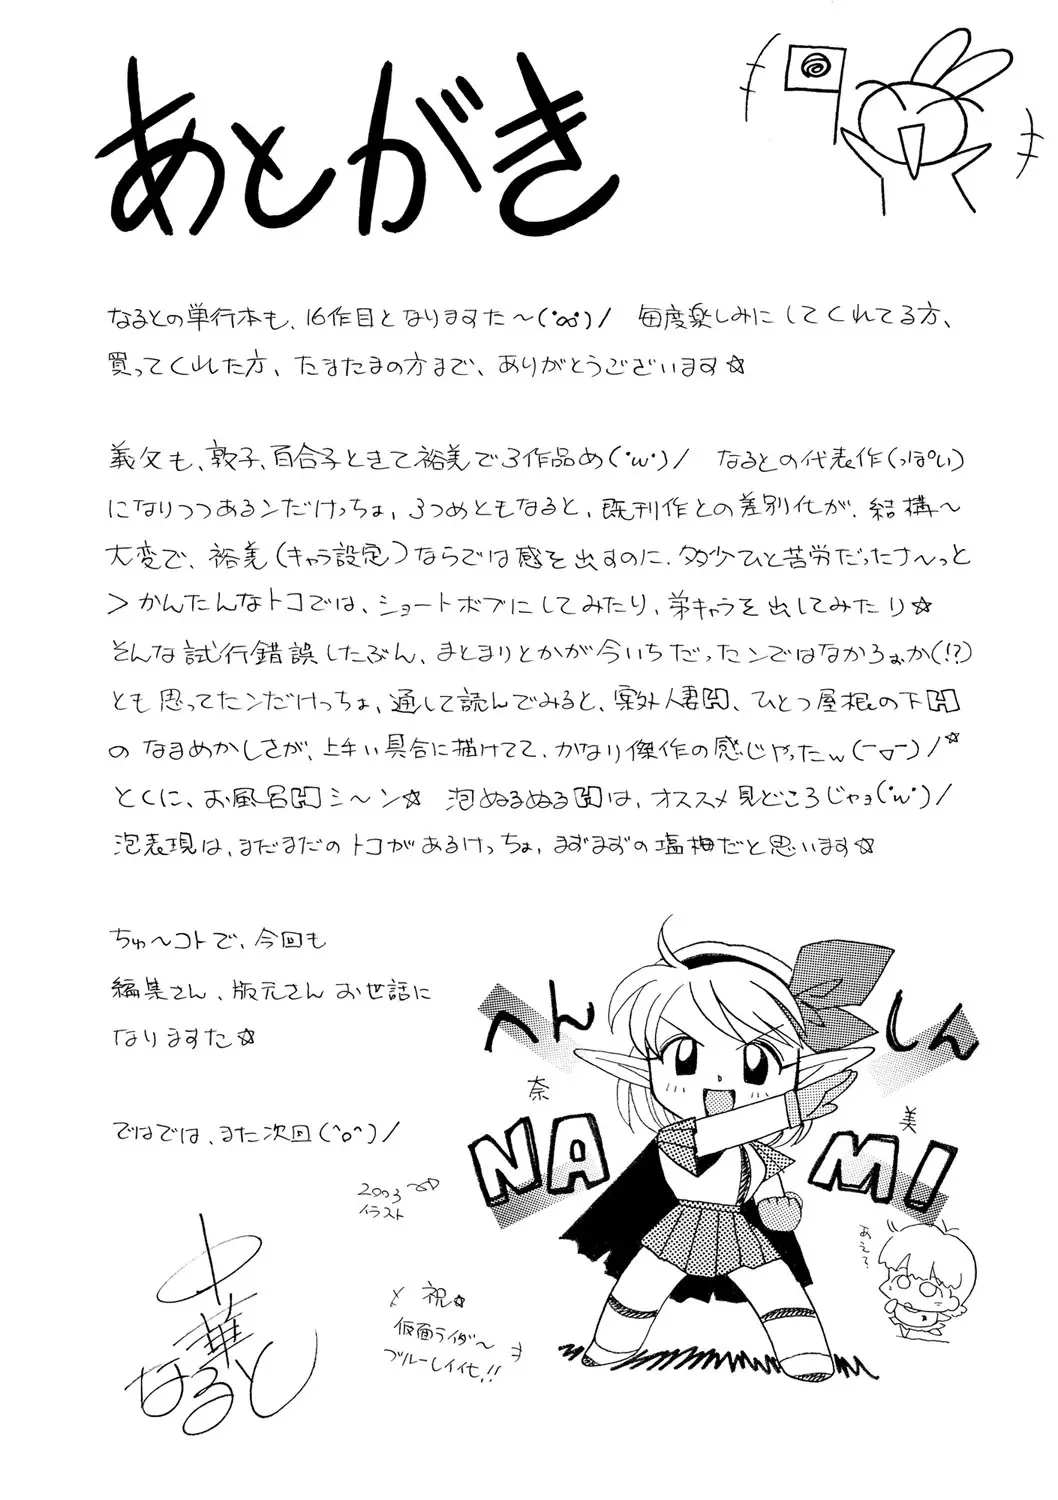 あとがき
なるとの単行本も、16作目となりますた～(･∞･)/ 毎度楽しみにしてくれてる方、
買ってくれた方、たまたまの方まで、ありがとうございます☆
義父も、敦子、百合子ときて裕美で3作品め(･ω･)/ なるとの代表作(っぽい)
になりつつあるンだけっちょ、3つめともなると、既刊作との差別化が、結構～
大変で、裕美(キャラ設定)ならでは感を出すのに、多少ひと苦労だったナ～っと
>かんたんなトコでは、ショートボブにしてみたり、弟キャラを出してみたり☆
そんな試行錯誤したぶん、まとまりとかが今いちだったンではなかろぉか(!?)
とも思ってたンだけっちょ、通して読んでみると、案外人妻H、ひとつ屋根の下H
のなまめかしさが、上手い具合に描けてて、かなり傑作の感じやったw(￣▽￣)/☆
とくに、お風呂Hシ～ン☆ 泡ぬるぬるHは、オススメ見どころじゃョ(･ω･)/
泡表現は、まだまだのトコがあるけっちょ、まずまずの塩梅だと思います☆
ちゅ～コトで、今回も
編集さん、版元さんお世話に
なりますた☆
ではでは、また次回(^o^)/
へん
しん
奈
美
NA
MI
2003
イラスト
あえて?
祝☆
仮面ライダ～
ブルーレイ化!!
中華
なると